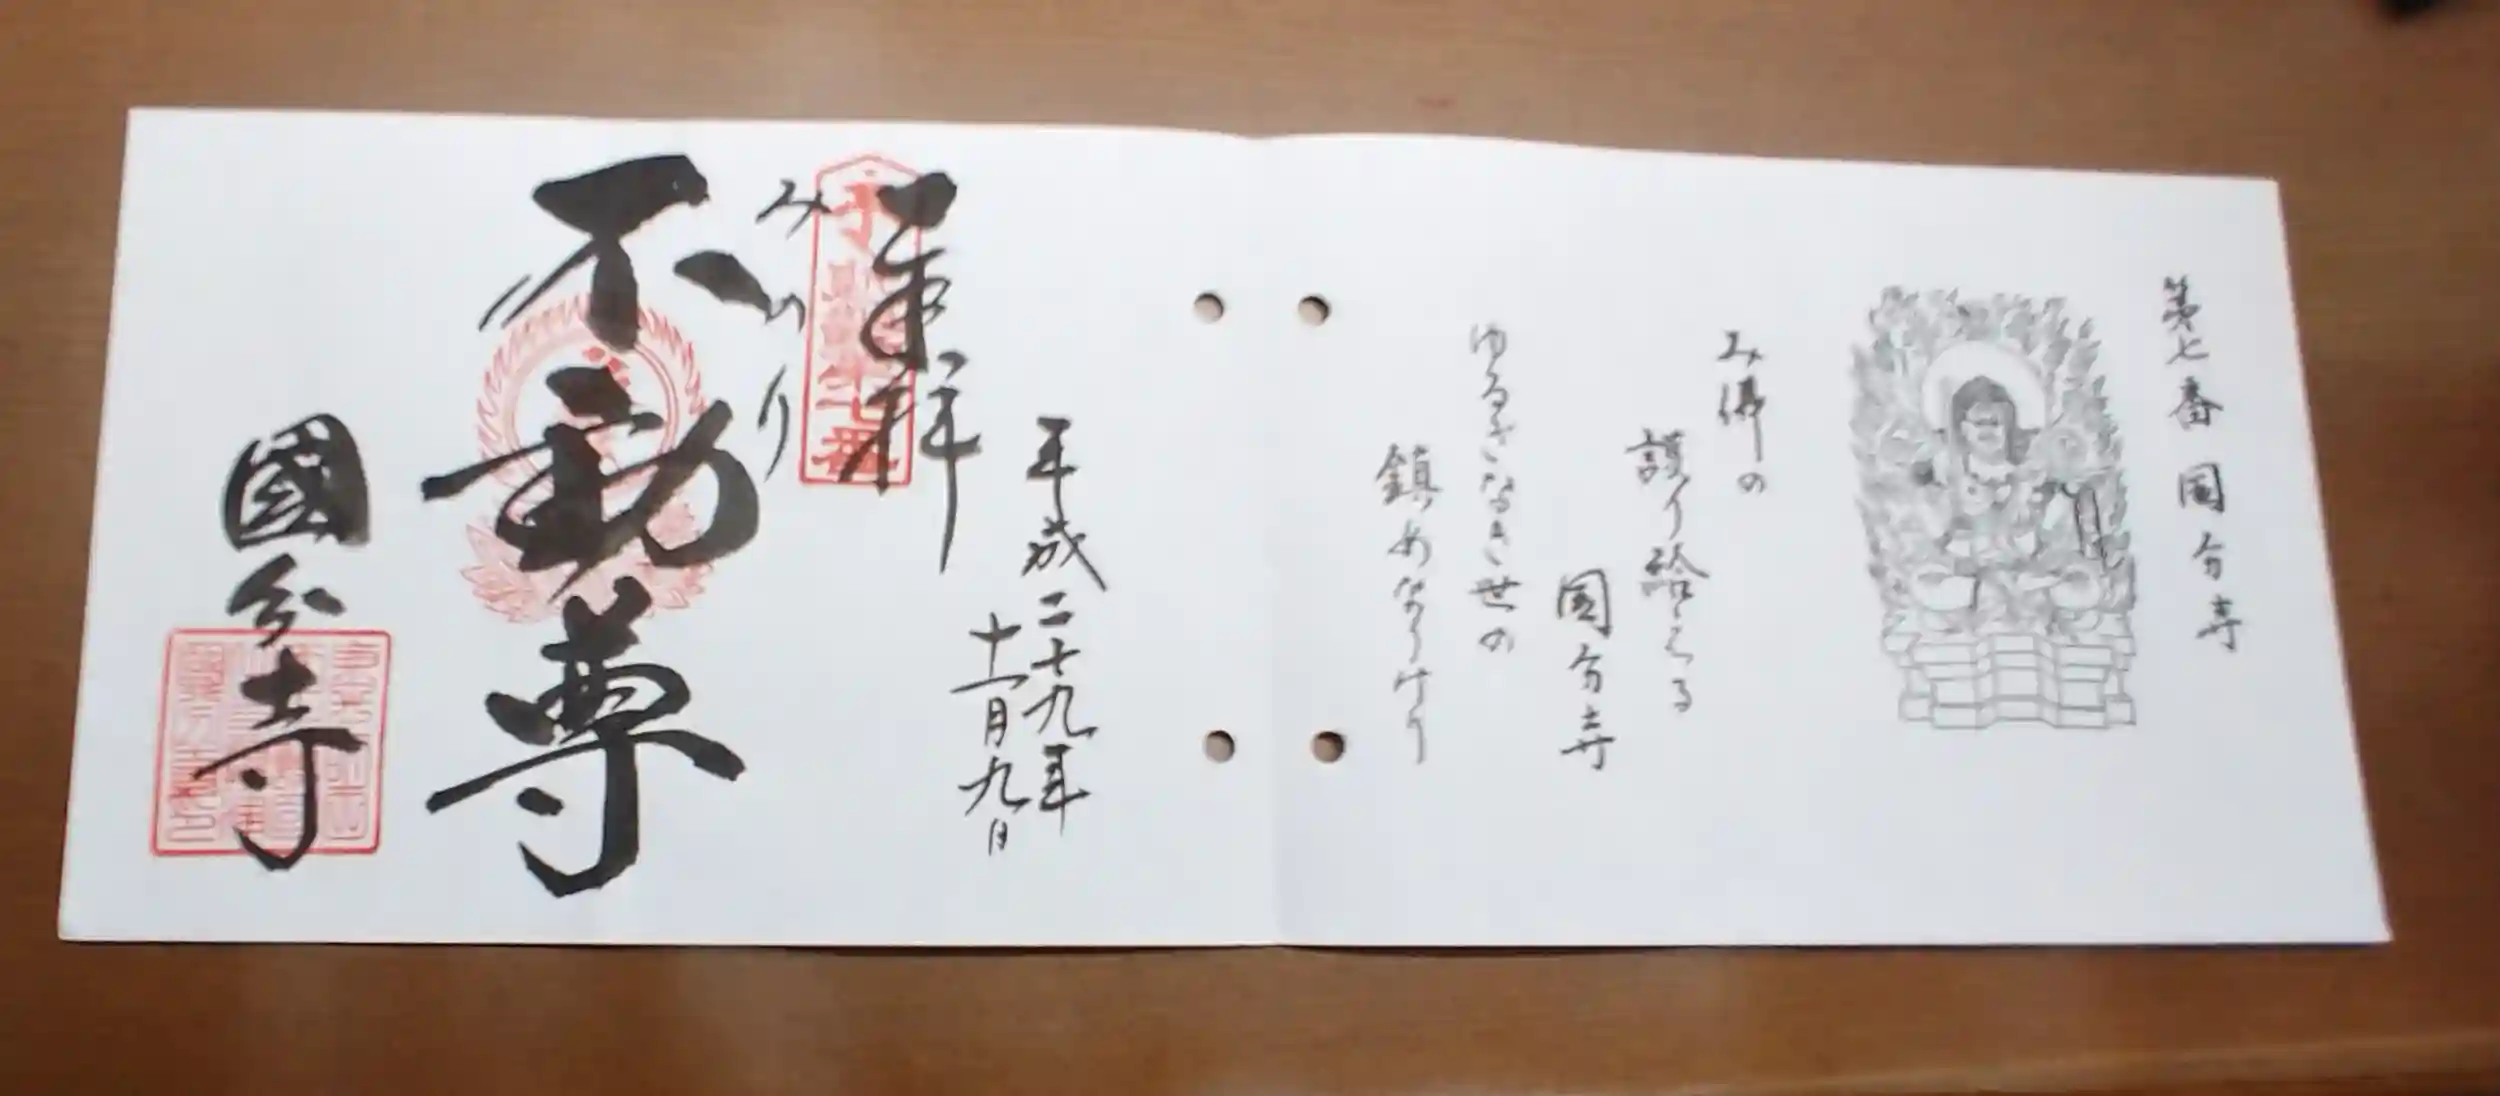 第七番 国分寺
み佛の
護り給へる
国分寺
ゆるぎなき世の
鎮めなりけり
平成二十九年
十一月九日
奉拝
不動尊
國分寺